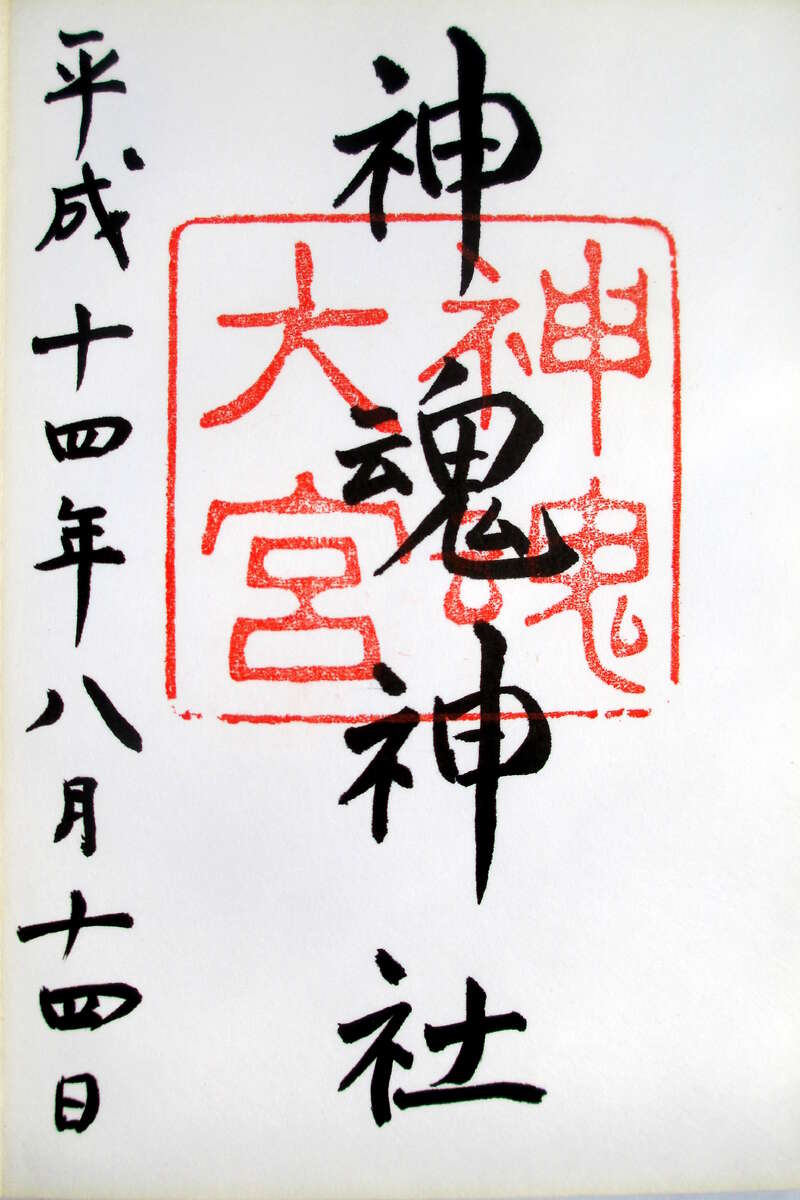 神魂神社
神魂
大宮
平成十四年八月十四日